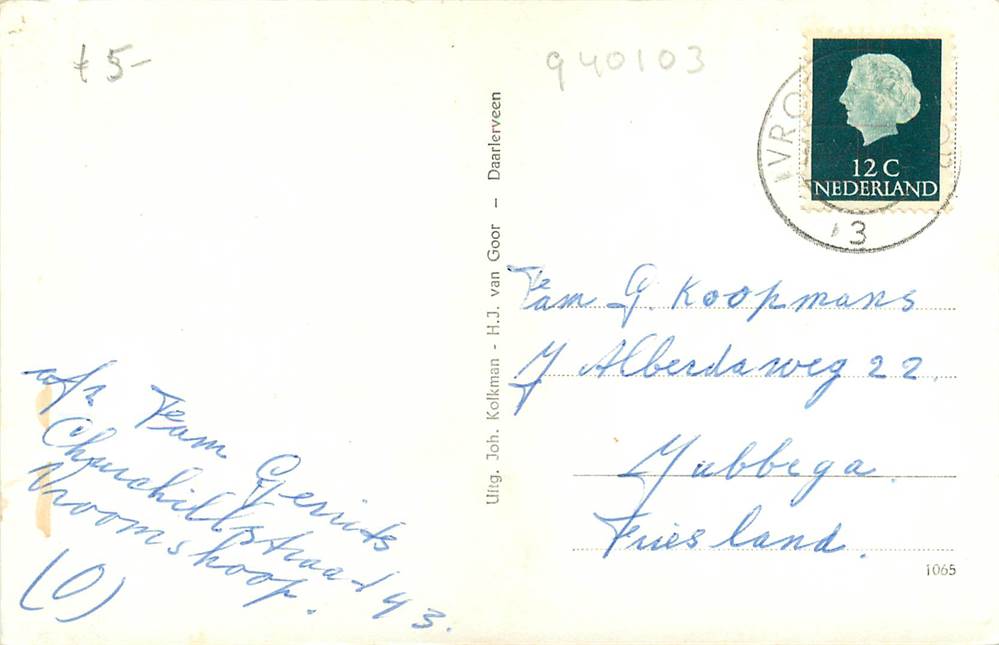 + 5-
940103
IVRO
12 C
NEDERLAND
3
Uitg. Joh. Kolkman - H.J. van Goor — Daarlerveen
Fam G. Koopmans
J Alberdaweg 22.
Jubbega.
Friesland.
1065
a/z Fam Gerrits
Churchillstraat 43.
Vroomshoop.
(O)